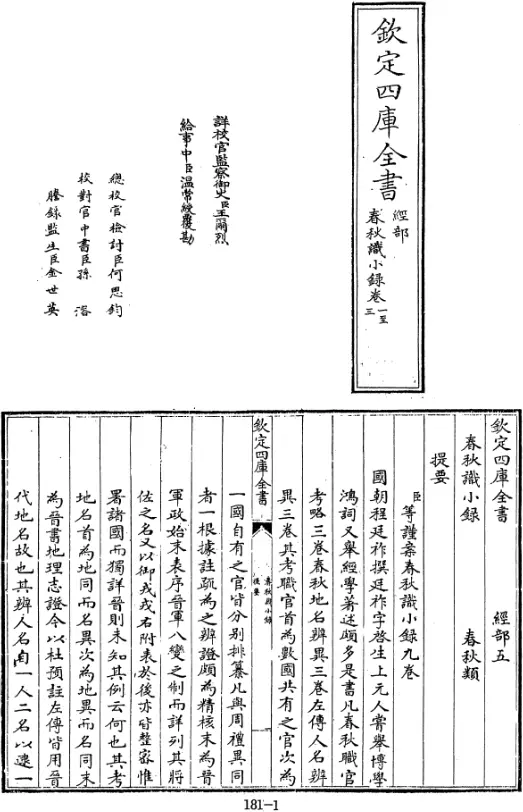 欽定四庫全書
經部
春秋識小録卷一至三
詳校官監察御史臣王爾烈
給事中臣溫常綬覆勘
總校官檢討臣何思鈞
校對官中書臣孫溶
謄錄監生臣金世英
欽定四庫全書　經部五
春秋識小録　春秋類
提要
臣等謹案春秋識小録九卷
國朝程廷祚撰廷祚字啓生上元人嘗舉博學
鴻詞又舉經學著述頗多是書凡春秋職官
考略三卷春秋地名辨異三卷左傳人名辨
異三卷其考職官首為數國共有之官次為
欽定四庫全書
春秋識小録
提要
一國自有之官皆分别排纂凡與周禮異同
者一一根據註疏為之辨證頗為精核末為晉
軍政始末表序晉軍八變之制而詳列其將
佐之名又以御戎戎右附表於後亦皆整宻惟
畧諸國而獨詳晉則未知其例云何也其考
地名首為地同而名異次為地異而名同末
為晉書地理志證今以杜預註左傳皆用晉
代地名故也其辨人名自一人二名以逮一
181-1